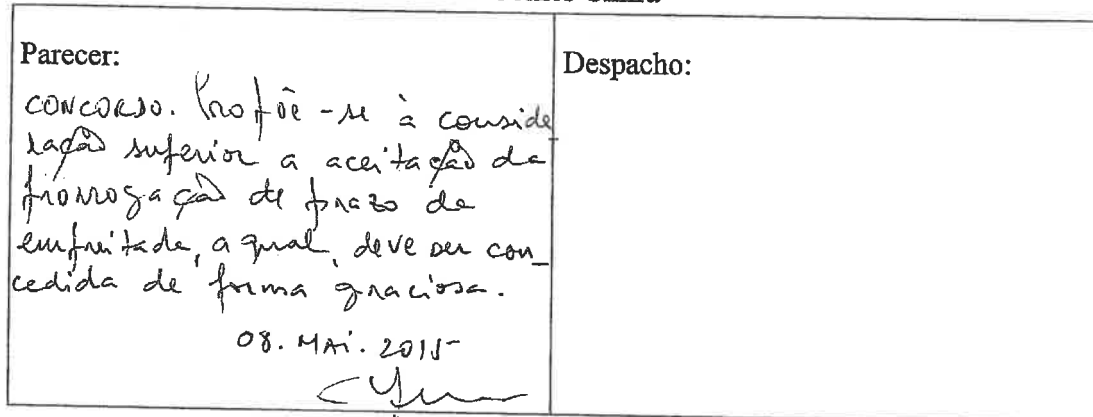 Parecer:
CONCORDO. Propõe-se à conside
ração superior a aceitação da
prorrogação de prazo da
empreitada, a qual, deve ser con_
cedida de forma graciosa.
08. MAI. 2015
Despacho: